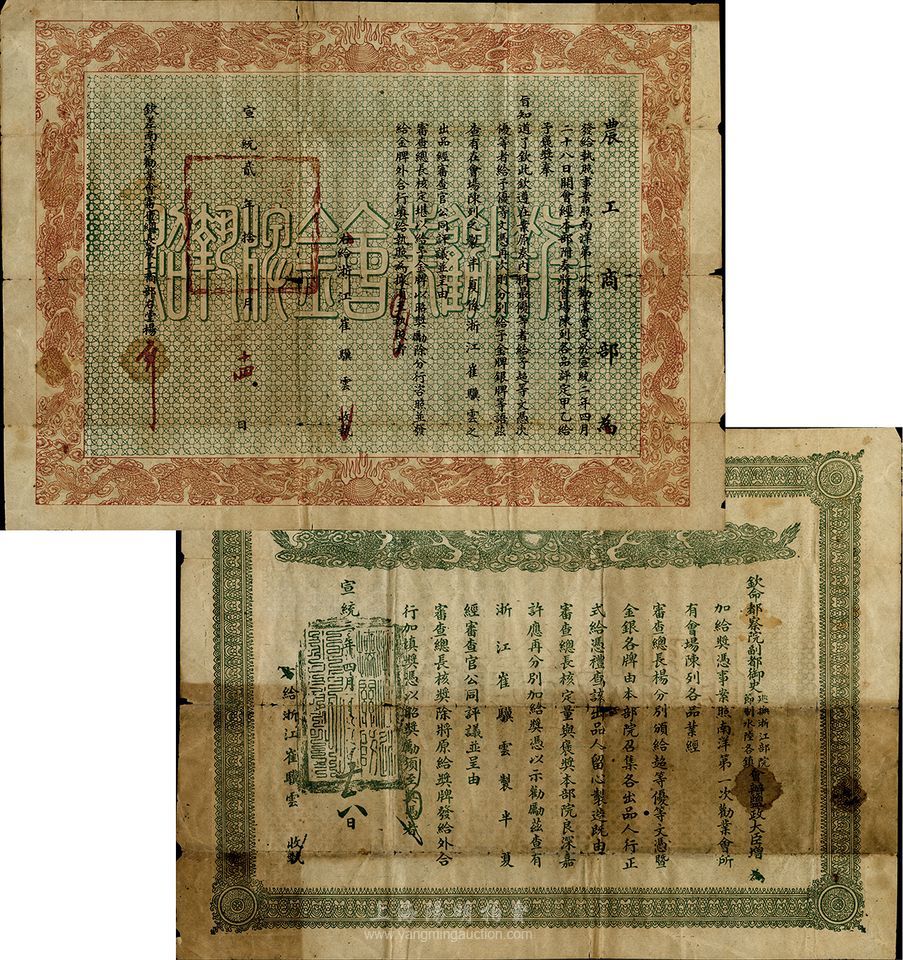 農工商部為
發給執照事案照南洋第一次勸業會定於宣統二年四月
二十八日開會經本部附奏將會場陳列各品評定甲乙給
予褒獎奉
旨知道了欽此欽遵在案原奏內稱最優等者給予超等文憑次
優等者給予優等文憑再次則分別給予金牌銀牌等語茲
查有在會場陳列之製半夏係浙江崔驥雲之
出品經審查官公同評議並呈由
審查總長核定堪以給予金牌以昭獎勵除分行咨照並發
給金牌外合行填給執照為據須至執照者
右給浙江崔驥雲收執
宣統貳年拾月十四日
欽差南洋勸業會審查總長農工商部右堂楊
南洋勸業會金牌執照
欽命都察院副都御史巡撫浙江部院節制水陸各鎮會辦鹽政大臣增為
加給獎憑事案照南洋第一次勸業會所
有會場陳列各品業經
審查總長楊分別頒給超等優等文憑暨
金銀各牌由本部院召集各出品人行正
式給憑禮查該出品人留心製造既由
審查總長核定量與褒獎本部院良深嘉
許應再分別加給獎憑以示勸勵茲查有
浙江崔驥雲製半夏
經審查官公同評議並呈由
審查總長核獎除將原給獎牌發給外合
行加填獎憑以昭獎勵須至獎憑者
右給浙江崔驥雲收執
宣統三年四月十八日
上海陽明拍賣
www.yangmingauction.com